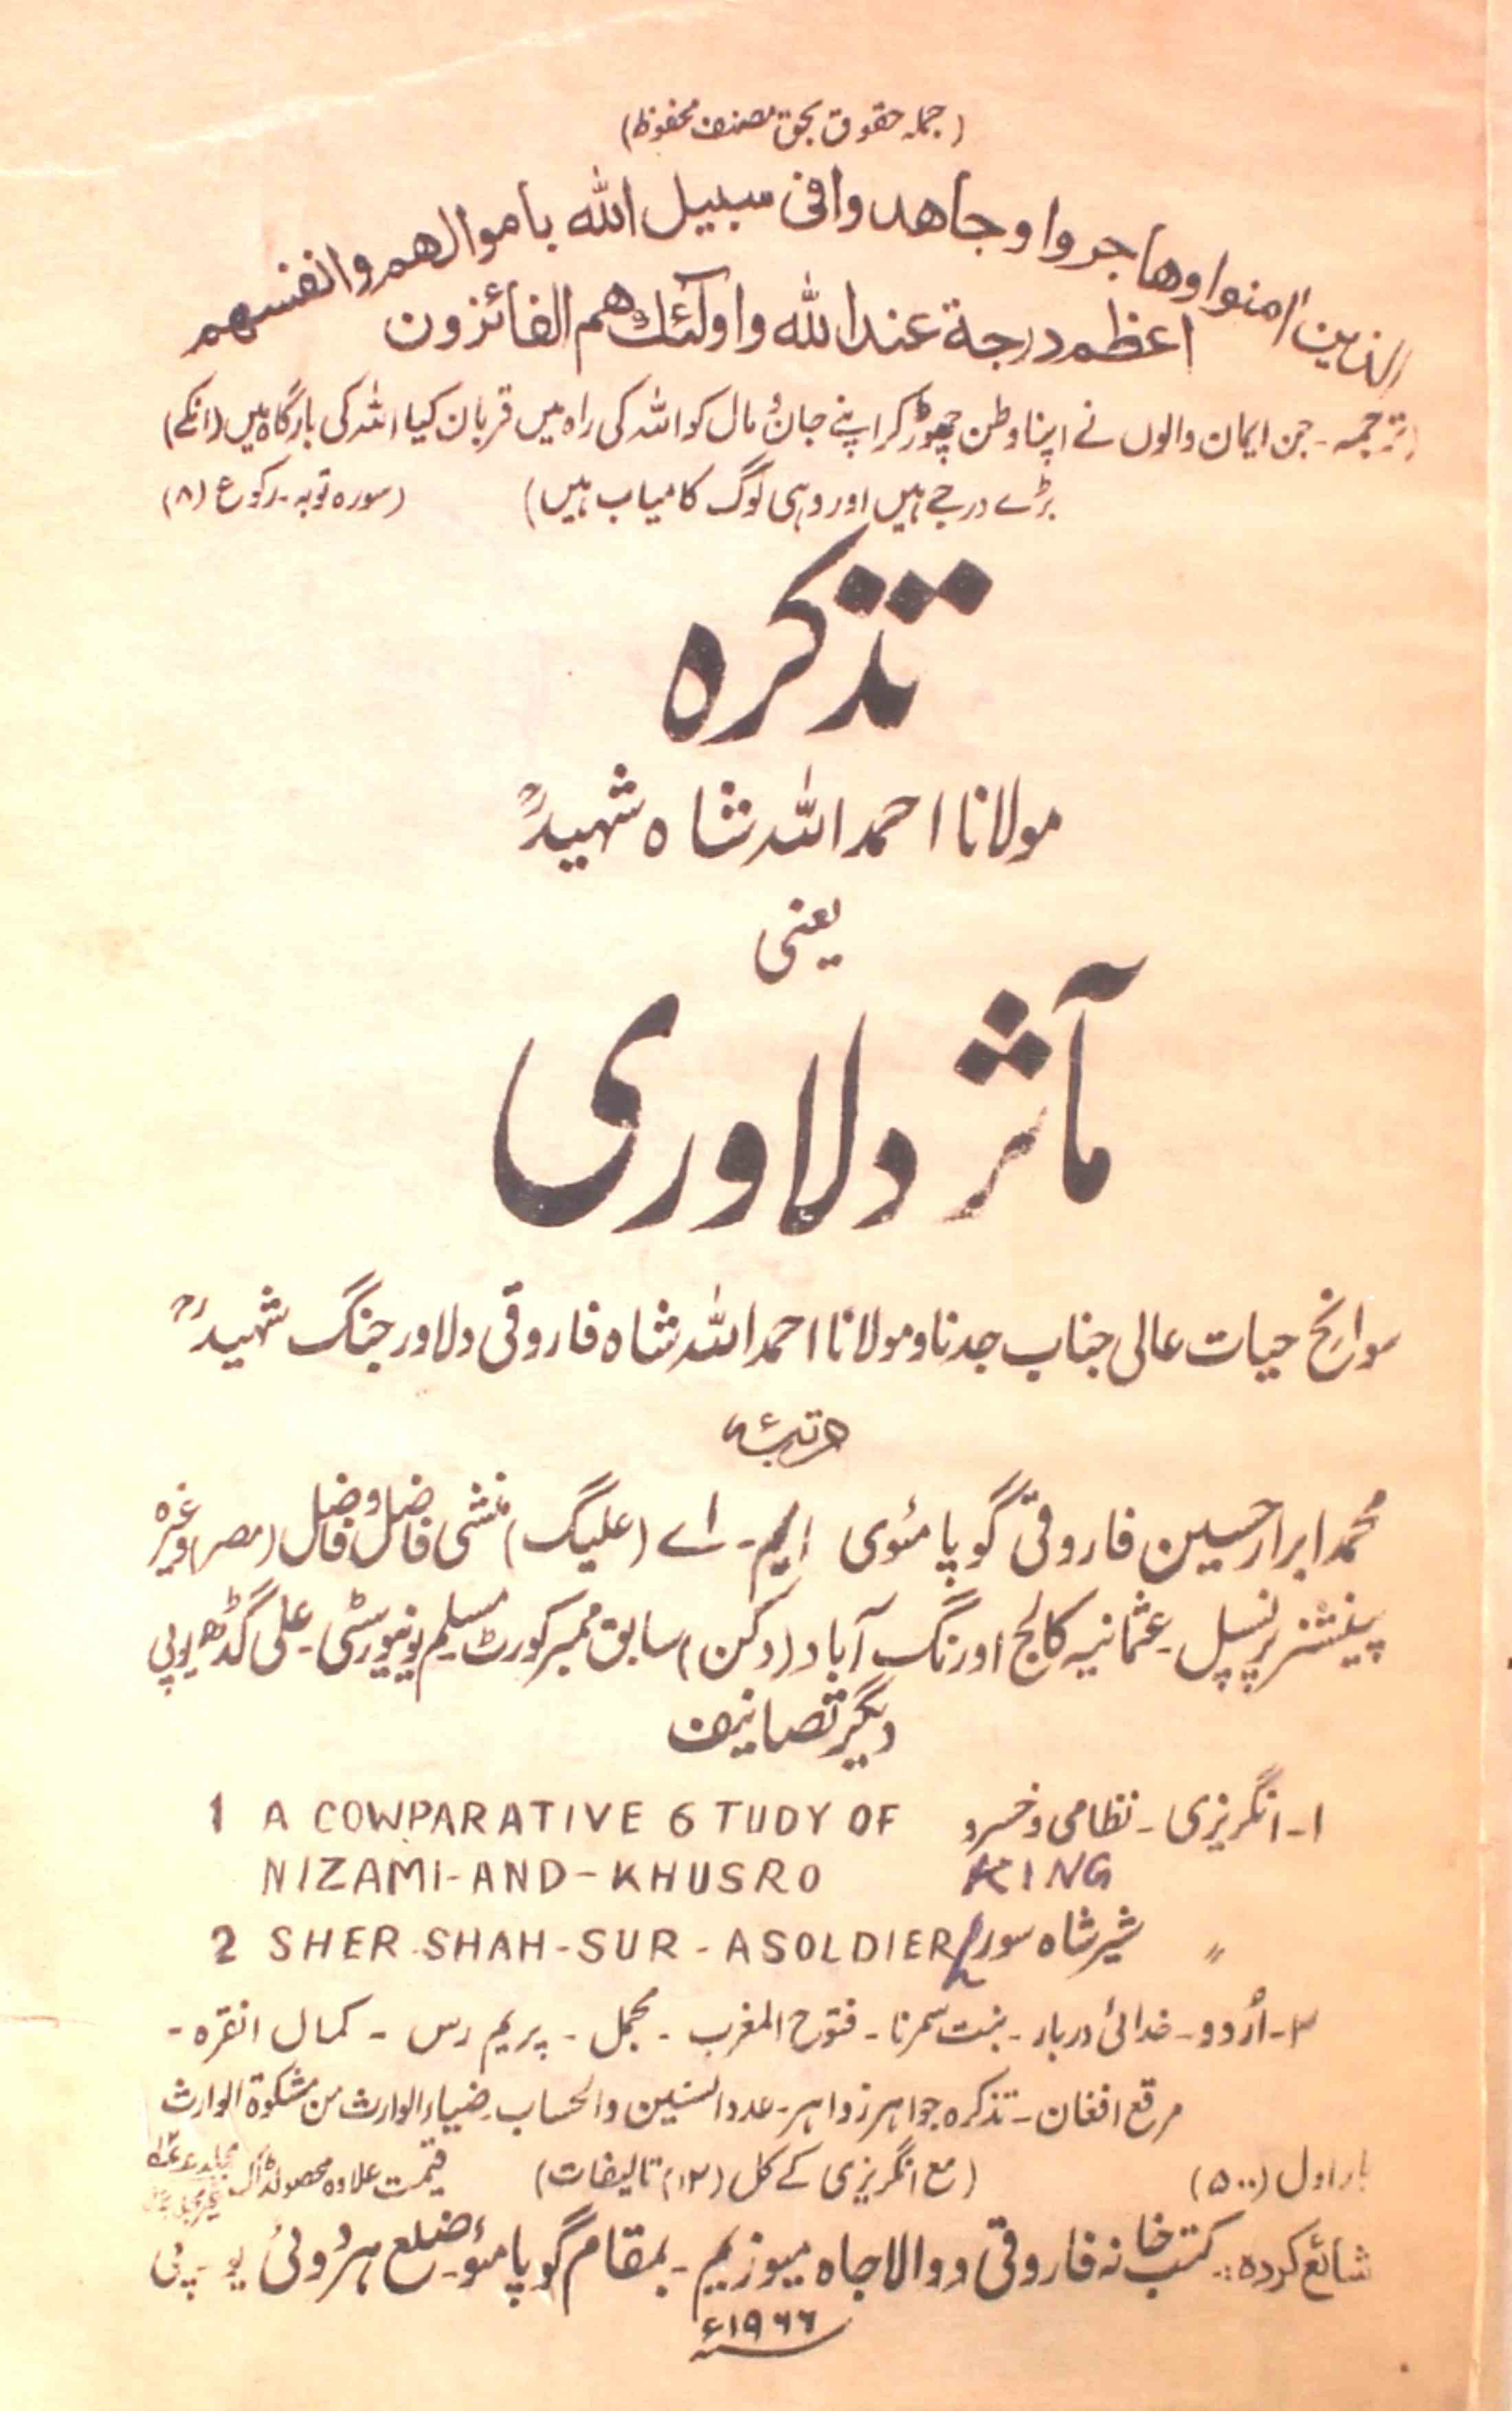 (جملہ حقوق بحق مصنف محفوظ)
الذین اٰمنوا وھاجروا وجاھدوا فی سبیل اللہ باموالھم وانفسھم
اعظم درجۃ عند اللہ واولٓئک ھم الفائزون
(ترجمہ - جن ایمان والوں نے اپنا وطن چھوڑ کر اپنے جان و مال کو اللہ کی راہ میں قربان کیا اللہ کی بارگاہ میں (انکے)
بڑے درجے ہیں اور وہی لوگ کامیاب ہیں) (سورہ توبہ - رکوع (۸)
تذکرہ
مولانا احمد اللہ شاہ شہیدؒ
یعنی
مآثر دلاوری
سوانح حیات عالی جناب جدنا و مولانا احمد اللہ شاہ فاروقی دلاور جنگ شہیدؒ
مرتبہٗ
محمد ابرار حسین فاروقی گوپامئوی ایم - اے (علیگ) منشی فاضل و فاضل (مصر) وغیرہ
پینشنر پرنسپل - عثمانیہ کالج اورنگ آباد (دکن) سابق ممبر کورٹ مسلم یونیورسٹی - علی گڈھ یوپی
دیگر تصانیف
۱- انگریزی - نظامی و خسرو 1 A COWPARATIVE STUDY OF
NIZAMI-AND-KHUSRO KING
〃 شیر شاہ سور 2 SHER-SHAH-SUR-A SOLDIER
۳- اُردو - خدائی دربار - بنت سمرنا - فتوح المغرب - مجمل - پریم رس - کمال انقرہ -
مرقع افغان - تذکرہ جواہر زواہر - عدد السنین والحساب - ضیاء الوارث من مشکوۃ الوارث
بار اول (۵۰۰) (مع انگریزی کے کل (۱۲) تالیفات) قیمت علاوہ محصولڈاک مجلد
شائع کردہ:- کتب خانہ فاروقی و والاجاہ میوزیم - بمقام گوپامئو - ضلع ہردوئی یو - پی
۱۹۶۶ء